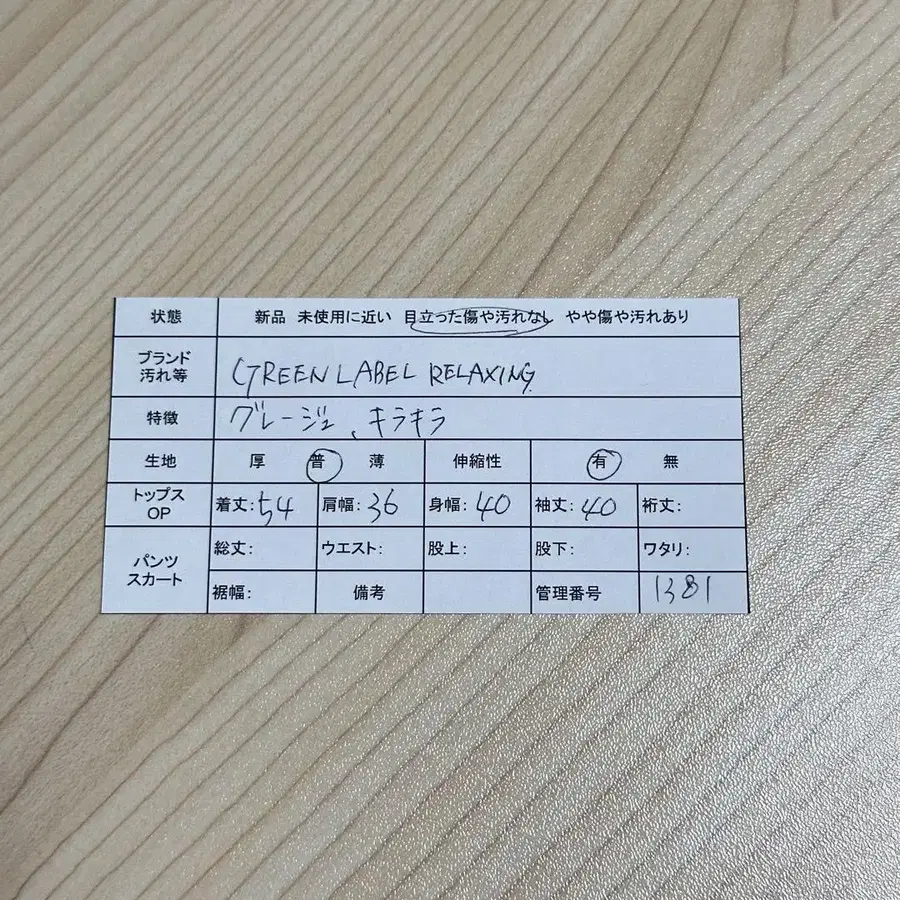 状態 新品 未使用に近い 目立った傷や汚れなし やや傷や汚れあり
ブランド
汚れ等 GREEN LABEL RELAXING
特徴 グレージュ、キラキラ
生地 厚 普 薄 伸縮性 有 無
トップス
OP 着丈:54 肩幅:36 身幅:40 袖丈:40 裄丈:
パンツ
スカート 総丈: ウエスト: 股上: 股下: ワタリ:
裾幅: 備考 管理番号 1381